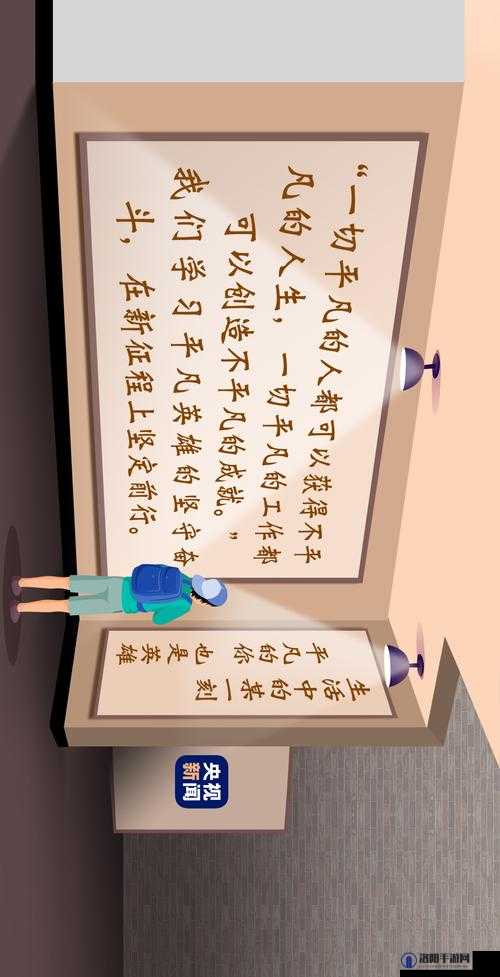 “一切平凡的人都可以获得不平
凡的人生，一切平凡的工作都
可以创造不平凡的成就。”
我们学习平凡英雄的坚守奋
斗，在新征程上坚定前行。
生活中的某一刻
平凡的你也是英雄
央视
新闻
洛阳手游网